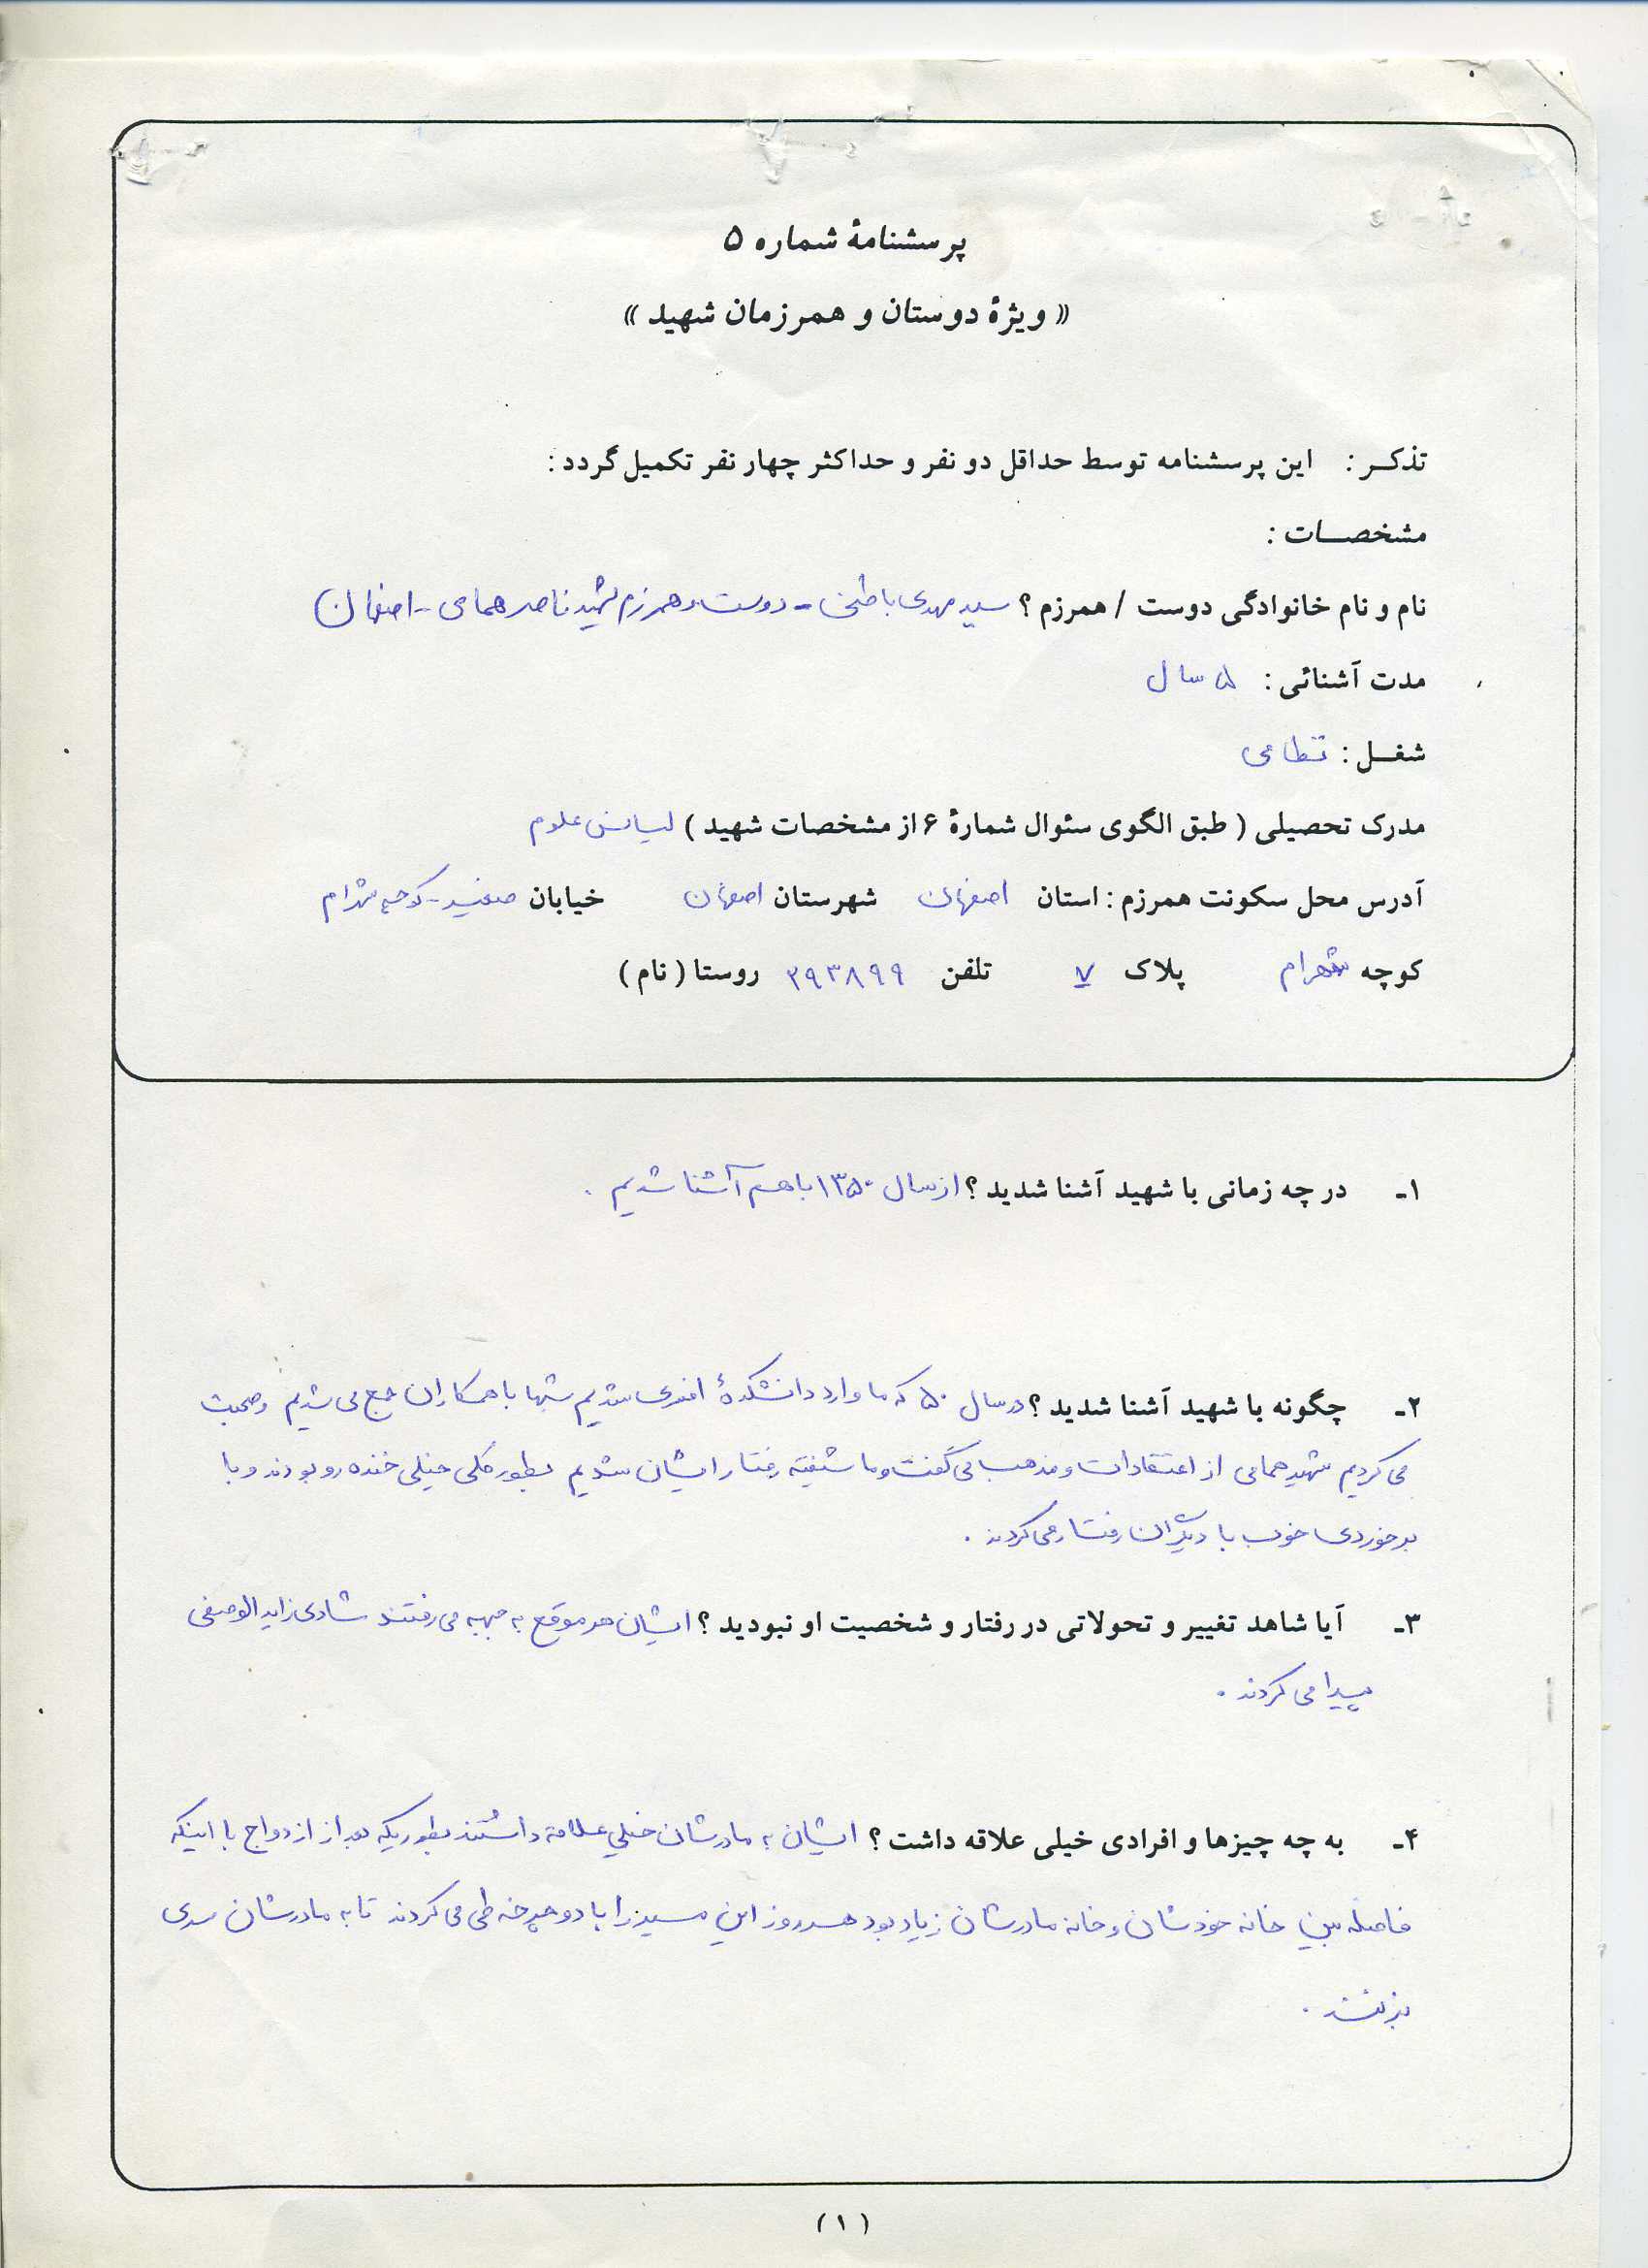 پرسشنامهٔ شماره ۵
« ویژهٔ دوستان و همرزمان شهید »
تذکر : این پرسشنامه توسط حداقل دو نفر و حداکثر چهار نفر تکمیل گردد :
مشخصات :
نام و نام خانوادگی دوست / همرزم ؟ سید مهدی باطنی - دوست و همرزم شهید ناصر همامی - اصفهان )
مدت آشنائی : ۵ سال
شغل : نظامی
مدرک تحصیلی ( طبق الگوی سئوال شمارهٔ ۶ از مشخصات شهید ) لیسانس علوم
آدرس محل سکونت همرزم : استان اصفهان شهرستان اصفهان خیابان - کوچه شهرام
کوچه شهرام پلاک ۷ تلفن ۲۹۳۸۹۹ روستا ( نام )
۱ـ در چه زمانی با شهید آشنا شدید ؟ از سال ۱۳۵۰ با هم آشنا شدیم .
۲ـ چگونه با شهید آشنا شدید ؟ در سال ۵۰ که ما وارد دانشکدهٔ افسری شدیم شبها با همکاران جمع می شدیم و صحبت
می کردیم شهید همامی از اعتقادات و مذهب می گفت و ما شیفته رفتار ایشان شدیم بطور کلی خیلی خنده رو بودند و با
برخوردی خوب با دیگران رفتار می کردند .
۳ـ آیا شاهد تغییر و تحولاتی در رفتار و شخصیت او نبودید ؟ ایشان هر موقع به جبهه می رفتند شادی زاید الوصفی
پیدا می کردند .
۴ـ به چه چیزها و افرادی خیلی علاقه داشت ؟ ایشان به مادرشان خیلی علاقه داشتند بطوریکه بعد از ازدواج با اینکه
فاصله بین خانه خودشان و خانه مادرشان زیاد بود هر روز این مسیر را با دوچرخه طی می کردند تا به مادرشان سری
بزنند .
( ۱ )